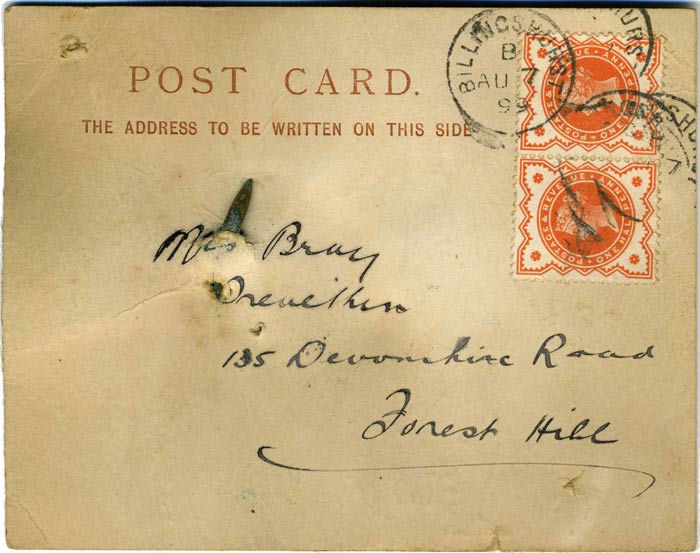 POST CARD.
THE ADDRESS TO BE WRITTEN ON THIS SIDE
BILLINGSHURST
B
AU 7
POSTAGE & REVENUE
ONE HALF PENNY
POSTAGE & REVENUE
ONE HALF PENNY
Mrs Bray
135 Devonshire Road
Forest Hill